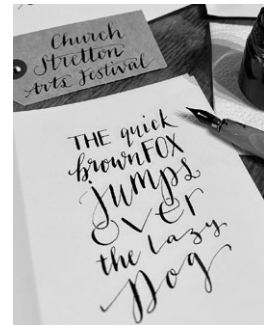 Church
Stretton
Arts Festival
THE quick
brown FOX
jumps
over
the lazy
Dog